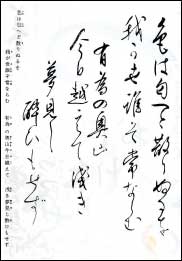 色は匂へど散りぬるを
我か世誰そ常ならむ
有為の奥山
今日越えて浅き
夢見し
酔ひもせず
色は匂へど散りぬるを
我が世誰ぞ常ならむ 有為の奥山今日越えて 浅き夢見じ酔ひもせず